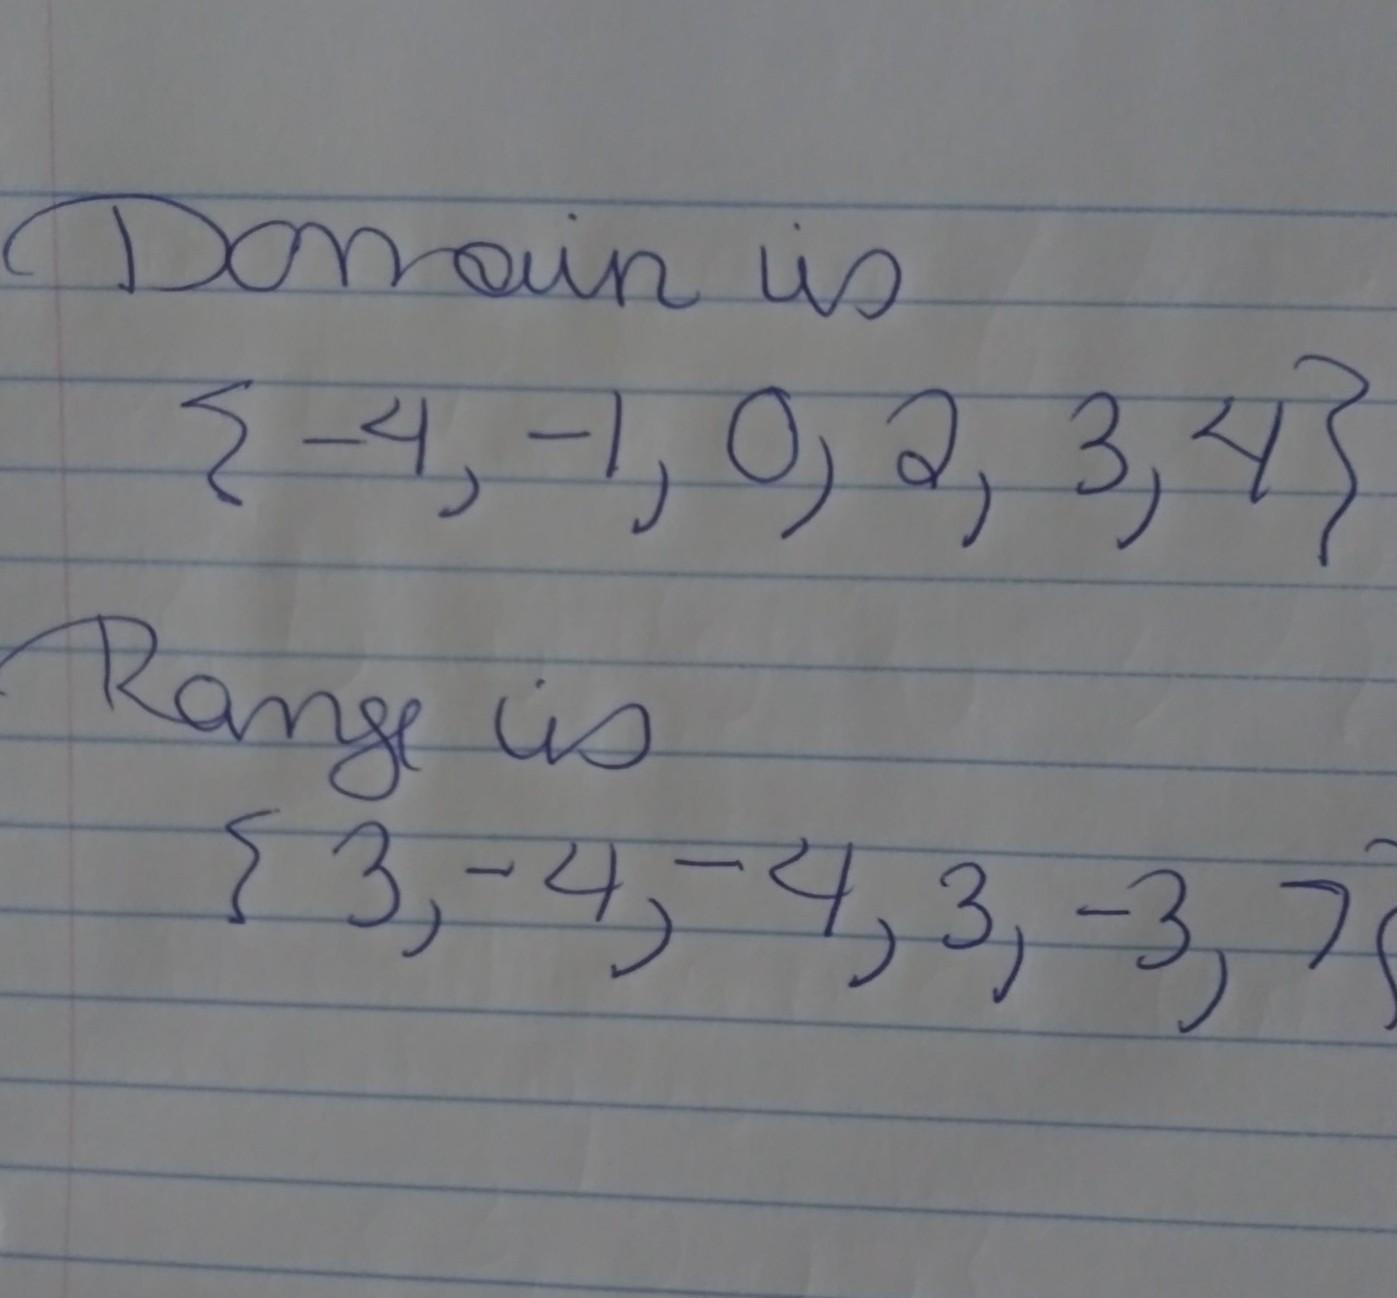 Domain is
{-4, -1, 0, 2, 3, 4}
Range is
{3, -4, -4, 3, -3, 7}